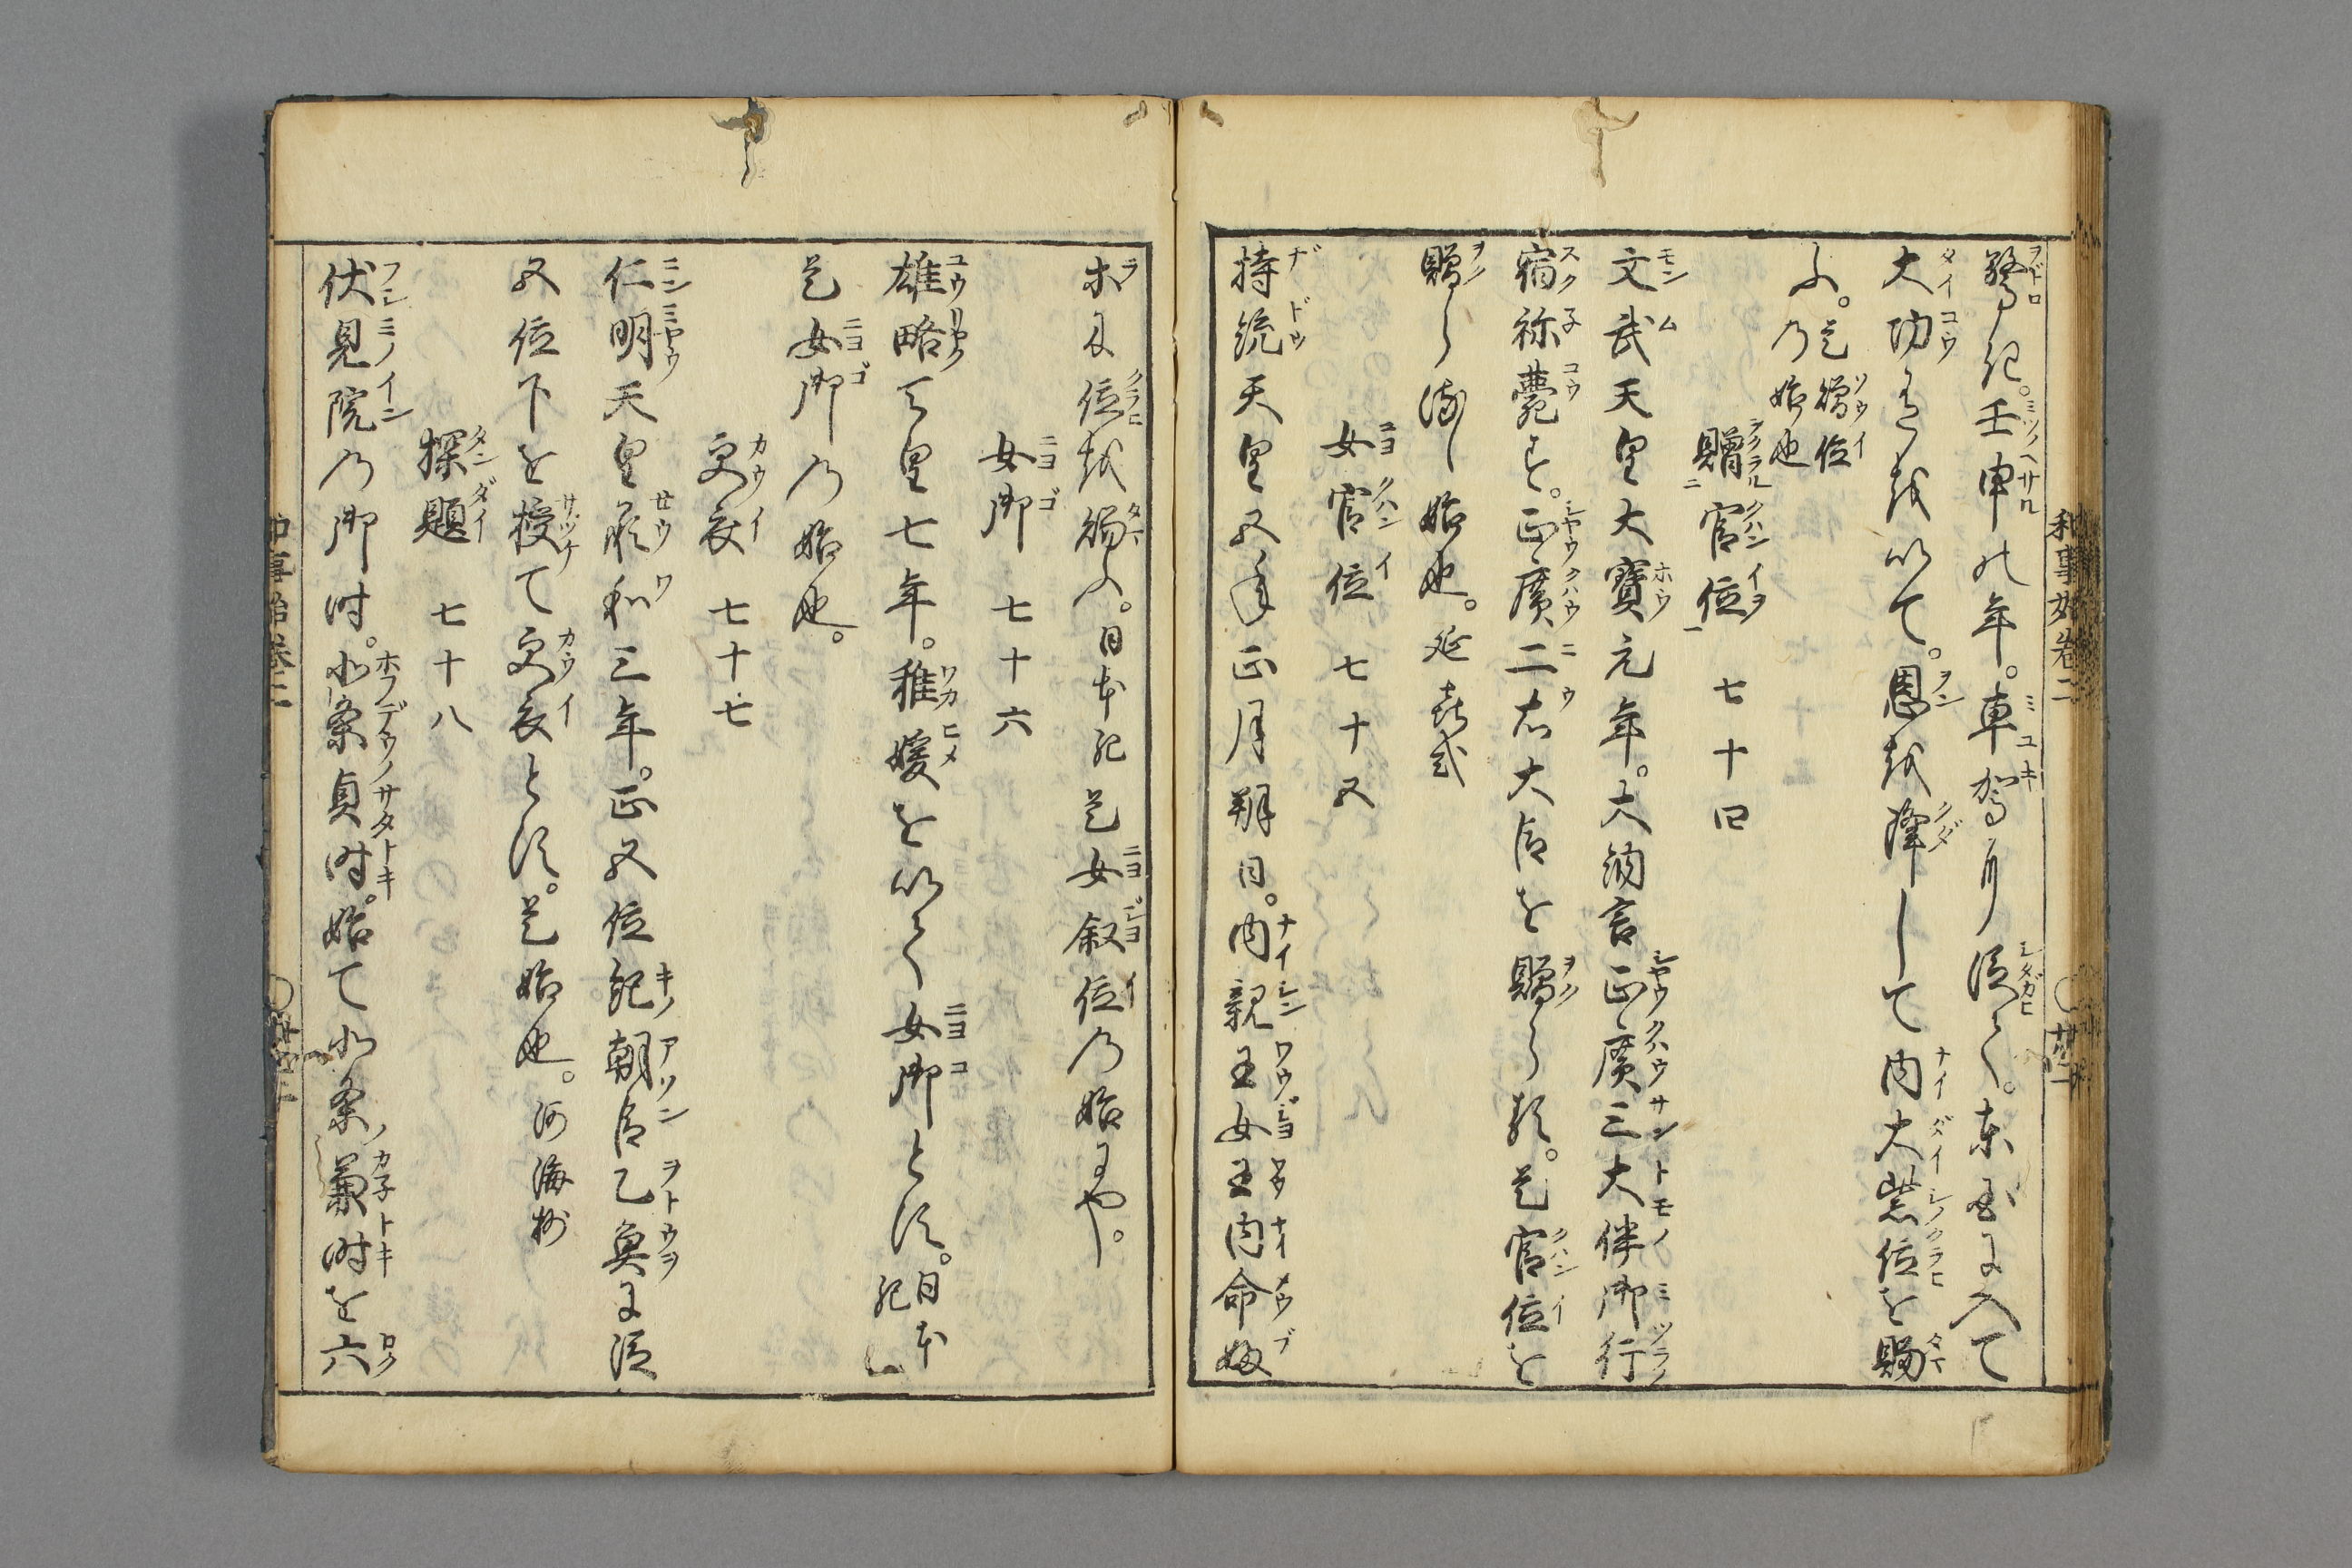 和事始巻二
驚き。壬申の年。車駕に従て。東国に入て
大功有を以て。恩を降して内大紫位を賜
ふ。是贈位の始也
贈官位 七十四
文武天皇大寳元年。大納言正廣三大伴御行
宿祢薨ず。正廣二右大臣を贈らる。是官位を
贈らるゝ始也。延喜式
女官位 七十五
持統天皇五年正月朔日。内親王女王内命婦
等に位を賜ふ。日本紀是女叙位の始にや。
女御 七十六
雄略天皇七年。稚媛を以て女御とす。日本紀
是女御の始也。
更衣 七十七
仁明天皇承和三年。正五位紀朝臣乙魚に従
五位下を授て更衣とす。是始也。河海抄
探題 七十八
伏見院の御時。北条貞時。始て北条兼時を六
和事始巻二